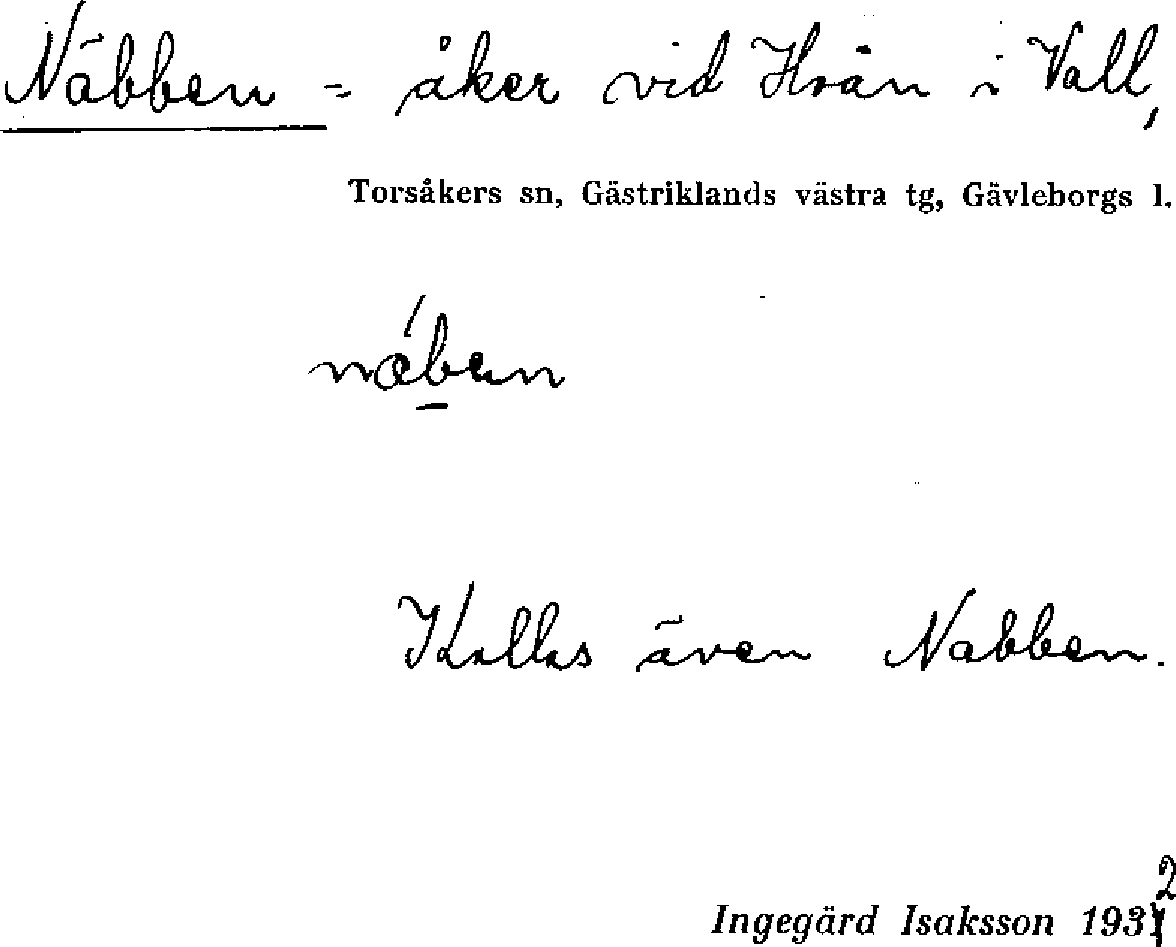 Näbben = åker vid Hoån i Vall,
Torsåkers sn, Gästriklands västra tg, Gävleborgs l.
næ´b̲en
Kallas även Nabben.
Ingegärd Isaksson 1932